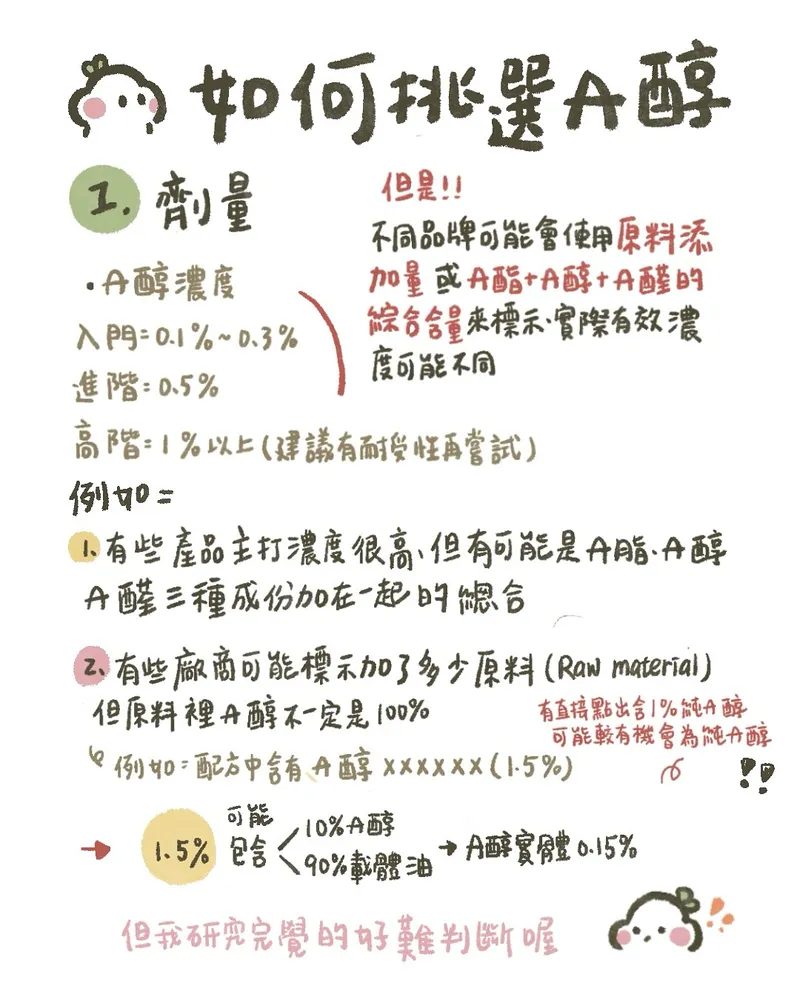 如何挑選A醇
1. 劑量
•A醇濃度
入門=0.1%~0.3%
進階=0.5%
高階=1%以上(建議有耐受性再嘗試)
但是!!
不同品牌可能會使用原料添
加量或A酯+A醇+A醛的
綜合含量來標示、實際有效濃
度可能不同
例如=
1. 有些產品主打濃度很高、但有可能是A脂、A醇
A醛三種成份加在一起的總合
2. 有些廠商可能標示加了多少原料(Raw material)
但原料裡A醇不一定是100%
有直接點出含1%純A醇
可能較有機會為純A醇
!!
例如=配方中含有、A醇xxxxxx(1.5%)
→ 1.5% 可能包含 10%A醇
90%載體油 → A醇實體0.15%
但我研究完覺的好難判斷喔